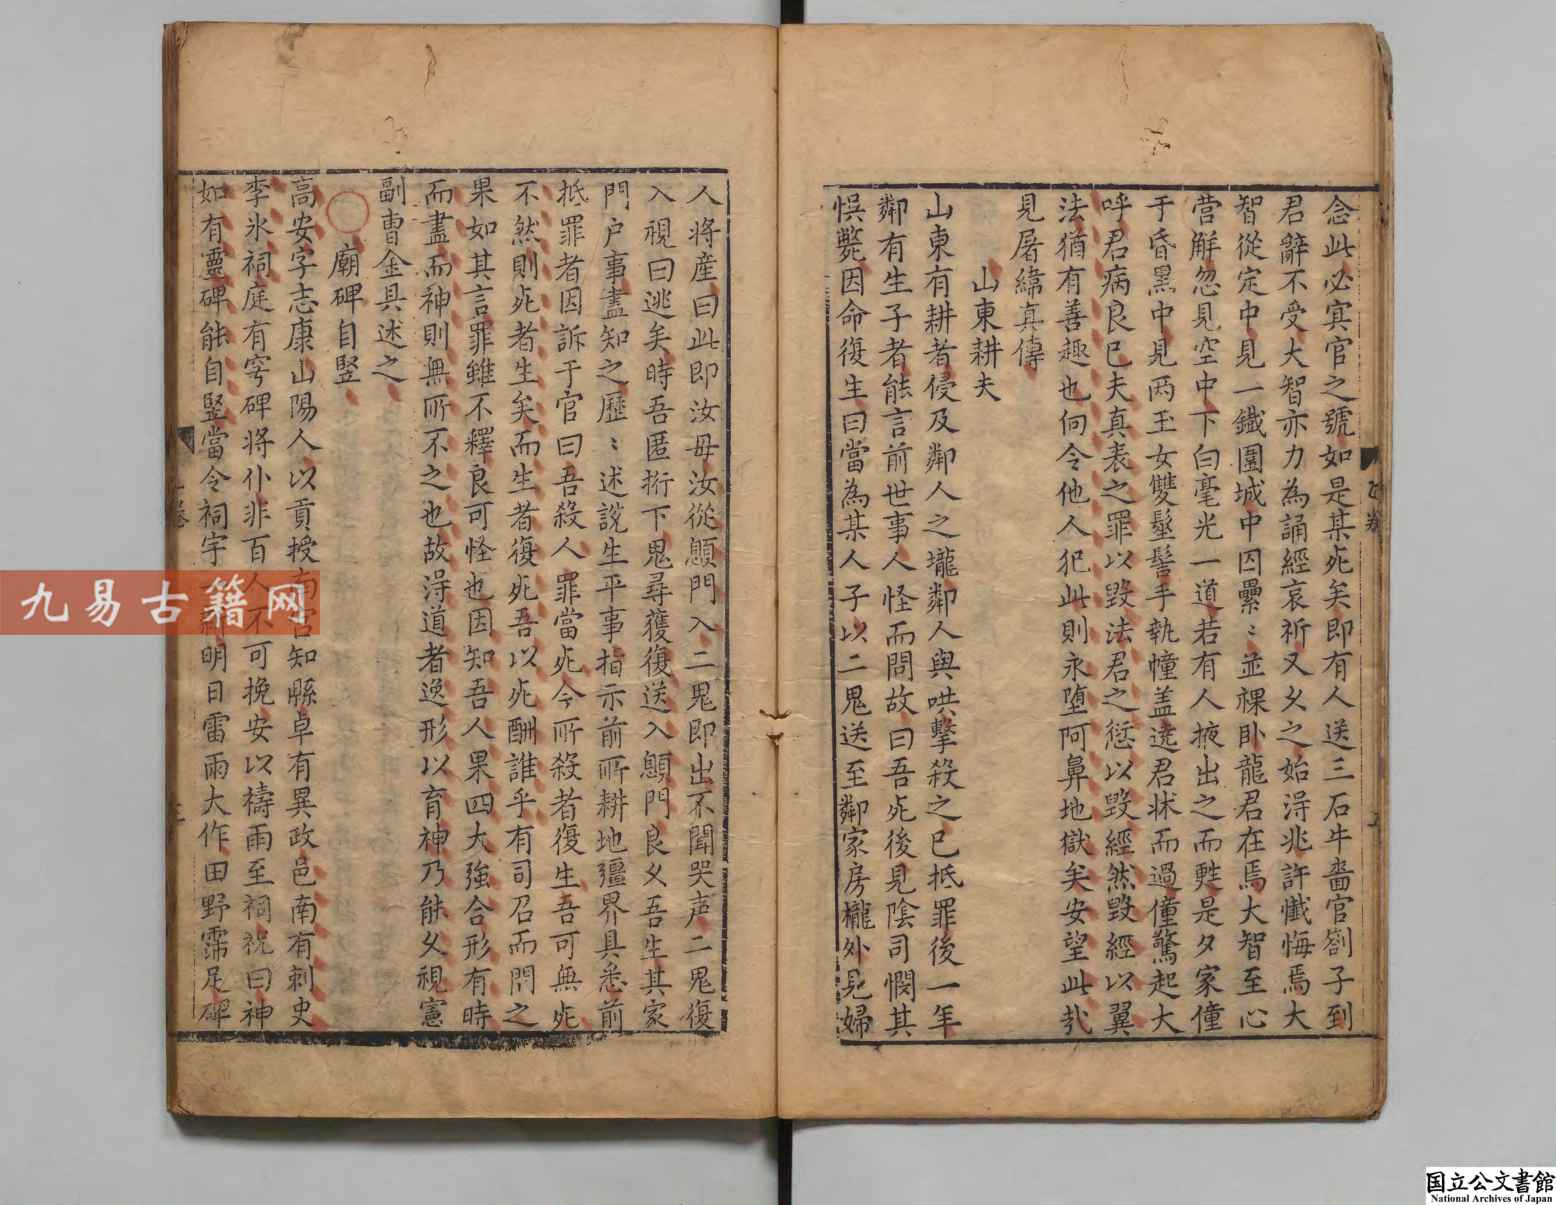 念此必㝠官之號如是某死矣即有人送三石牛嗇官劄子到
君辭不受大智亦力為誦經哀祈又乆之始淂兆許懺悔焉大
智從定中見一鐵圍城中囚纍〻並裸卧龍君在焉大智至心
营解忽見空中下白毫光一道若有人掖出之而甦是夕家僮
于昏黑中見两玉女雙鬟髻手執幢盖遶君牀而過僮驚起大
呼君病良已夫真表之罪以毀法君之愆以毀經然毀經以翼
法猶有善趣也向令他人犯此則永墮阿鼻地獄矣安望此㢤
見屠緯真傳
山東耕夫
山東有耕者侵及鄰人之壠鄰人與哄擊殺之已抵罪後一年
鄰有生子者能言前世事人怪而問故曰吾死後見陰司憫其
悞斃因命復生曰當為某人子以二鬼送至鄰家房櫳外見婦
人將産曰此即汝母汝從顖門入二鬼即出不聞哭声二鬼復
入視曰逃矣時吾匿桁下鬼尋獲復送入顖門良乆吾生其家
門户事盡知之歷〻述說生平事指示前所耕地彊界具悉前
抵罪者因訴于官曰吾殺人罪當死今所殺者復生吾可無死
不然則死者生矣而生者復死吾以死酬誰乎有司召而問之
果如其言罪雖不釋良可怪也因知吾人果四大強合形有時
而盡而神則無所不之也故淂道者逸形以育神乃能乆視憲
副曹金具述之
廟碑自竪
高安字志康山陽人以貢授南宫知縣卓有異政邑南有刺史
李氷祠庭有穹碑將仆非百人不可挽安以禱雨至祠祝曰神
如有靈碑能自竪當令祠宇一新明日雷雨大作田野霈足碑
九易古籍网
国立公文書館
National Archives of Japan